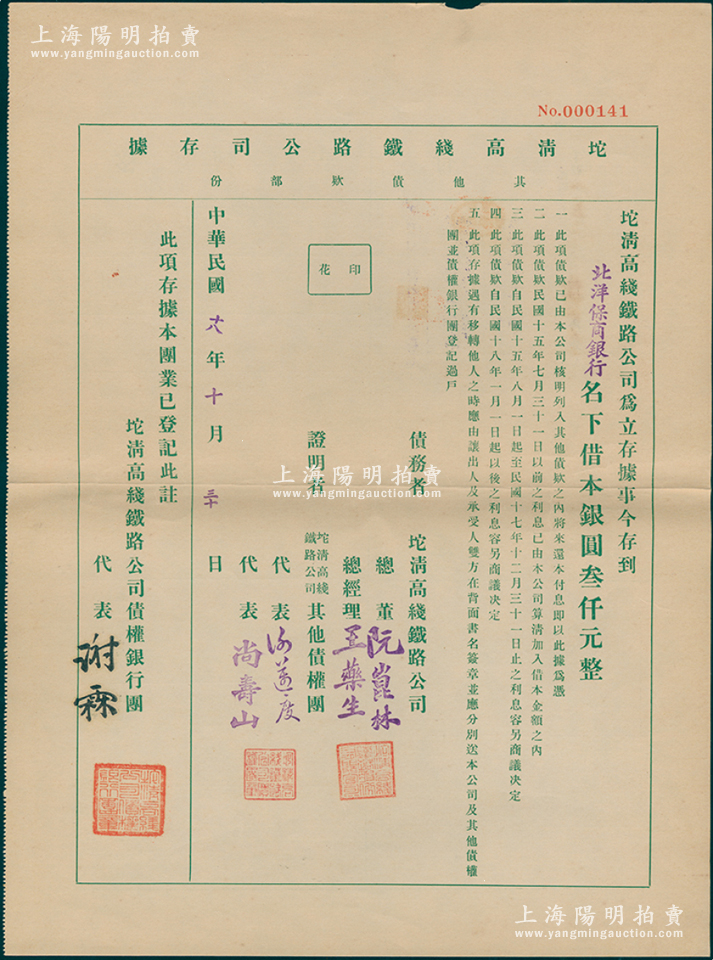 上海陽明拍賣
www.yangmingauction.com
No.000141
坨淸高綫鐵路公司存據
其他債欵部份
坨淸高綫鐵路公司爲立存據事今存到
北洋保商銀行名下借本銀圓叁仟元整
一 此項債欵已由本公司核明列入其他債欵之內將來還本付息即以此據爲憑
二 此項債欵民國十五年七月三十一日以前之利息已由本公司算淸加入借本金額之內
三 此項債欵自民國十五年八月一日起至民國十七年十二月三十一日止之利息容另商議决定
四 此項債欵自民國十八年一月一日起以後之利息容另商議决定
五 此項存據遇有移轉他人之時應由讓出人及承受人雙方在背面書名簽章並應分別送本公司及其他債權
團並債權銀行團登記過戶
債務者 坨淸高綫鐵路公司
總董 阮崑林
總經理 王藥生
印花
證明者 坨淸高綫鐵路公司其他債權團
代表
代表 尚壽山
中華民國十八年十月三十日
此項存據本團業已登記此註
坨淸高綫鐵路公司債權銀行團
代表 謝霖
上海陽明拍賣
www.yangmingauction.com
上海陽明拍賣
www.yangmingauction.com